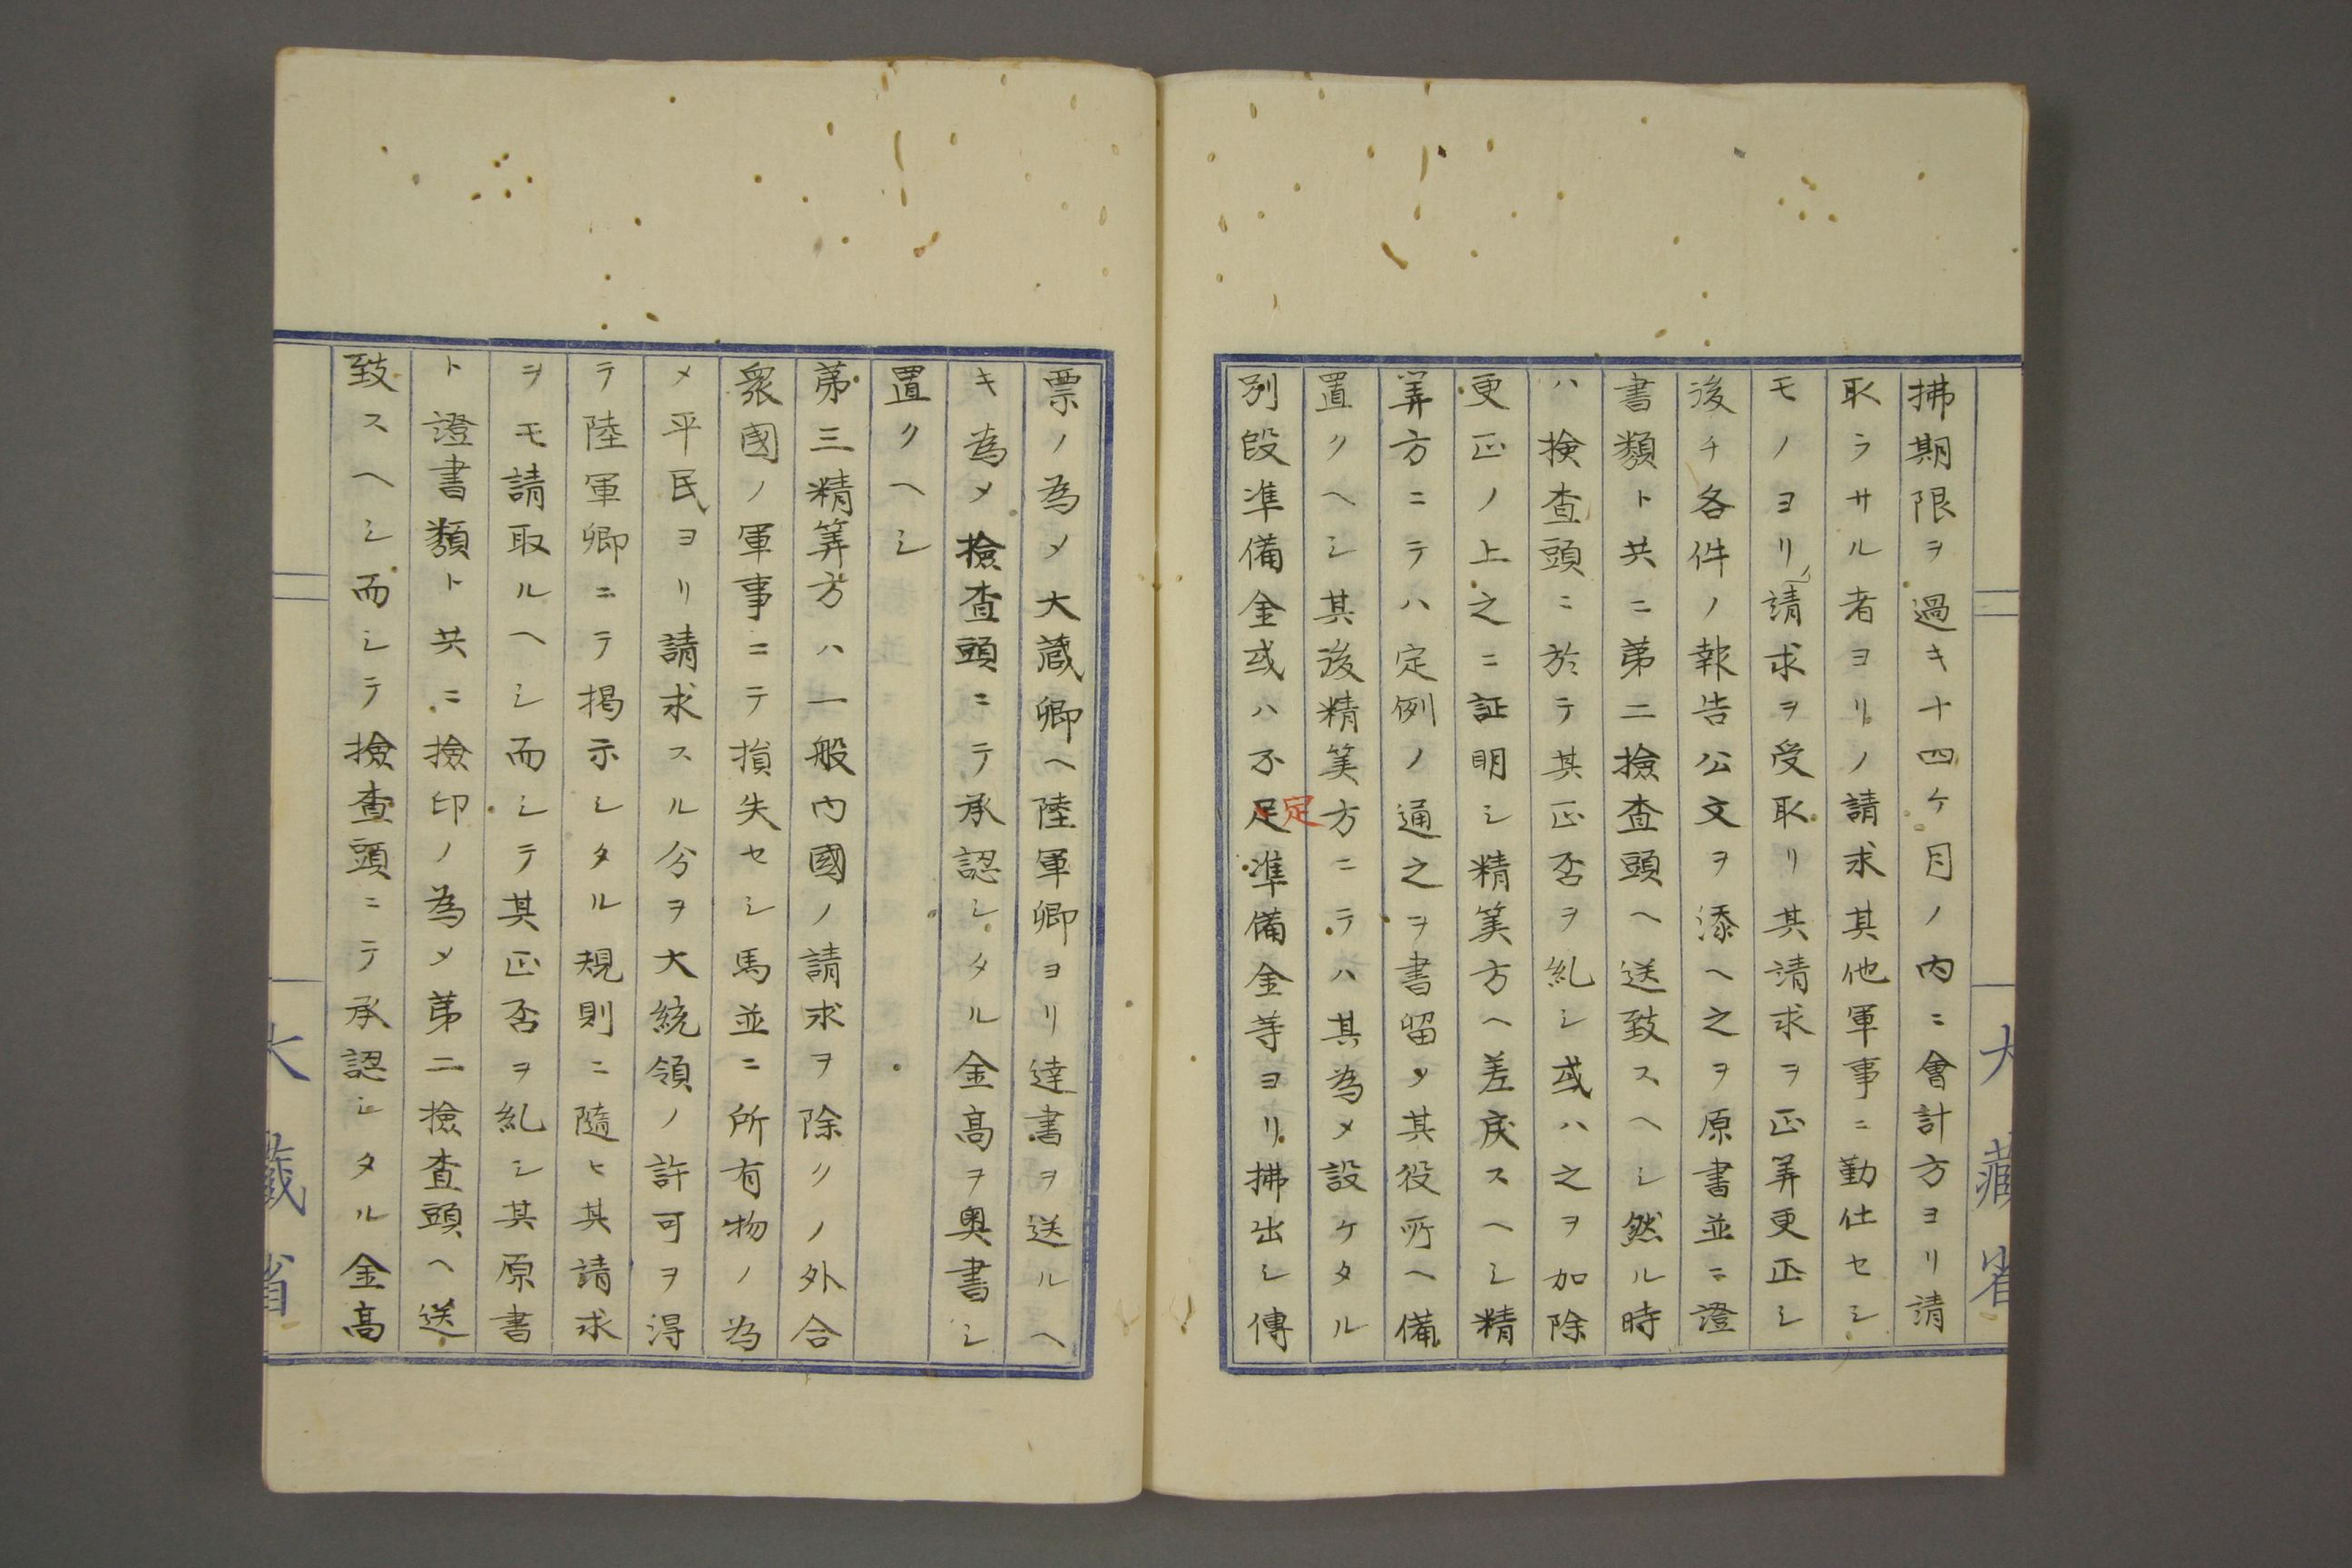 拂期限ヲ過キ十四ケ月ノ内ニ會計方ヨリ請
取ラサル者ヨリノ請求其他軍事ニ勤仕セシ
モノヨリ請求ヲ受取リ其請求ヲ正筭更正シ
後チ各件ノ報告公文ヲ添ヘ之ヲ原書並ニ證
書類ト共ニ第二撿査頭ヘ送致スヘシ然ル時
ハ撿査頭ニ於テ其正否ヲ糺シ或ハ之ヲ加除
更正ノ上之ニ証明シ精筭方ヘ差戻スヘシ精
筭方ニテハ定例ノ通之ヲ書留メ其役所ヘ備
置クヘシ其後精筭方ニテハ其為メ設ケタル
別段準備金或ハ不足準備金等ヨリ拂出シ傳
定
大藏省
票ノ為メ大蔵卿ヘ陸軍卿ヨリ達書ヲ送ルヘ
キ為メ撿査頭ニテ承認シタル金高ヲ奥書シ
置クヘシ
第三精筭方ハ一般内國ノ請求ヲ除クノ外合
衆國ノ軍事ニテ損失セシ馬並ニ所有物ノ為
メ平民ヨリ請求スル分ヲ大統領ノ許可ヲ得
テ陸軍卿ニテ掲示シタル規則ニ隨ヒ其請求
ヲモ請取ルヘシ而シテ其正否ヲ糺シ其原書
ト證書類ト共ニ撿印ノ為メ第二撿査頭ヘ送
致スヘシ而シテ撿査頭ニテ承認シタル金高
大藏省